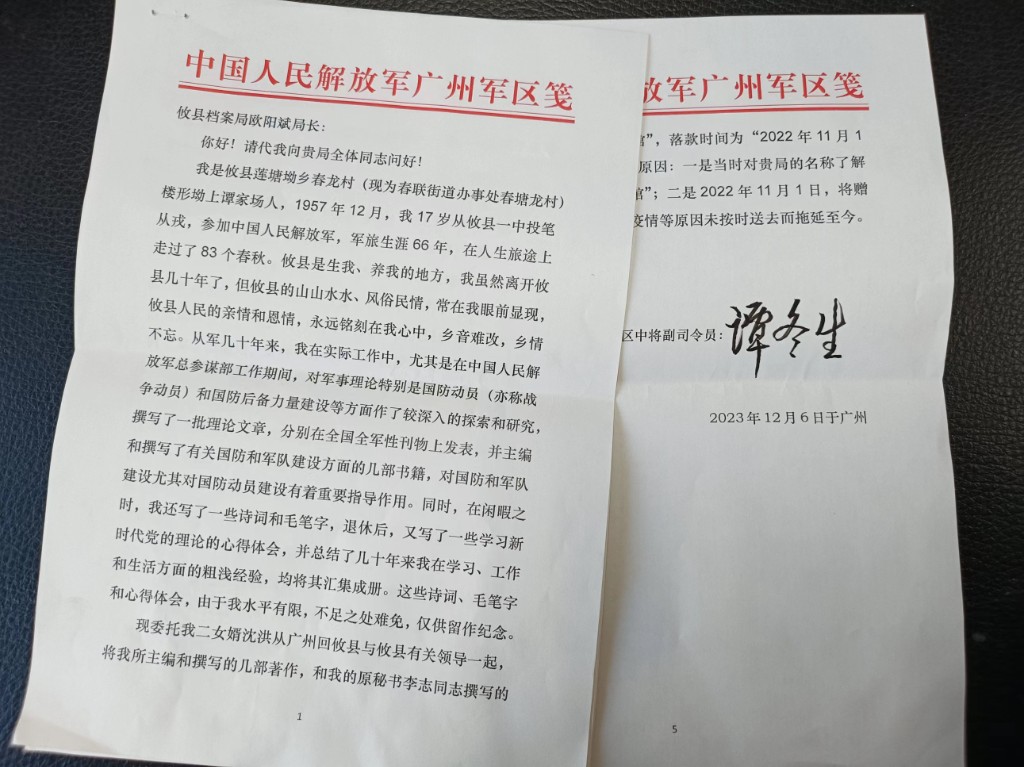 中国人民解放军广州军区笺
攸县档案局欧阳斌局长：
你好！请代我向贵局全体同志问好！
我是攸县莲塘坳乡春龙村（现为春联街道办事处春塘龙村）
楼形坳上谭家场人，1957年12月，我17岁从攸县一中投笔
从戎，参加中国人民解放军，军旅生涯66年，在人生旅途上
走过了83个春秋。攸县是生我、养我的地方，我虽然离开攸
县几十年了，但攸县的山山水水、风俗民情，常在我眼前显现，
攸县人民的亲情和恩情，永远铭刻在我心中，乡音难改，乡情
不忘。从军几十年来，我在实际工作中，尤其是在中国人民解
放军总参谋部工作期间，对军事理论特别是国防动员（亦称战
争动员）和国防后备力量建设等方面作了较深入的探索和研究，
撰写了一批理论文章，分别在全国全军性刊物上发表，并主编
和撰写了有关国防和军队建设方面的几部书籍，对国防和军队
建设尤其对国防动员建设有着重要指导作用。同时，在闲暇之
时，我还写了一些诗词和毛笔字，退休后，又写了一些学习新
时代党的理论的心得体会，并总结了几十年来我在学习、工作
和生活方面的粗浅经验，均将其汇集成册。这些诗词、毛笔字
和心得体会，由于我水平有限，不足之处难免，仅供留作纪念。
现委托我二女婿沈洪从广州回攸县与攸县有关领导一起，
将我所主编和撰写的几部著作，和我的原秘书李志同志撰写的
1
放军广州军区笺
馆”，落款时间为“2022年11月1
原因：一是当时对贵局的名称了解
馆”；二是2022年11月1日，将赠
疫情等原因未按时送去而拖延至今。
区中将副司令员：谭冬生
2023年12月6日于广州
5